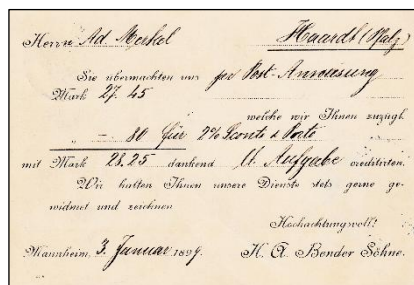 Herrn Ad Merkel Haardt (Pfalz)
Sie übermachten uns per Post-Anweisung
Mark 27.45
welche wir Ihnen zuzügl.
– 80 für 2% Sconto & Porto
mit Mark 28.25 dankend U. Aufgabe creditirten.
Wir halten Ihnen unsere Dienste stets gerne ge-
widmet und zeichnen
Hochachtungsvoll!
Mannheim, 3. Januar 1899. H. A. Bender Söhne.